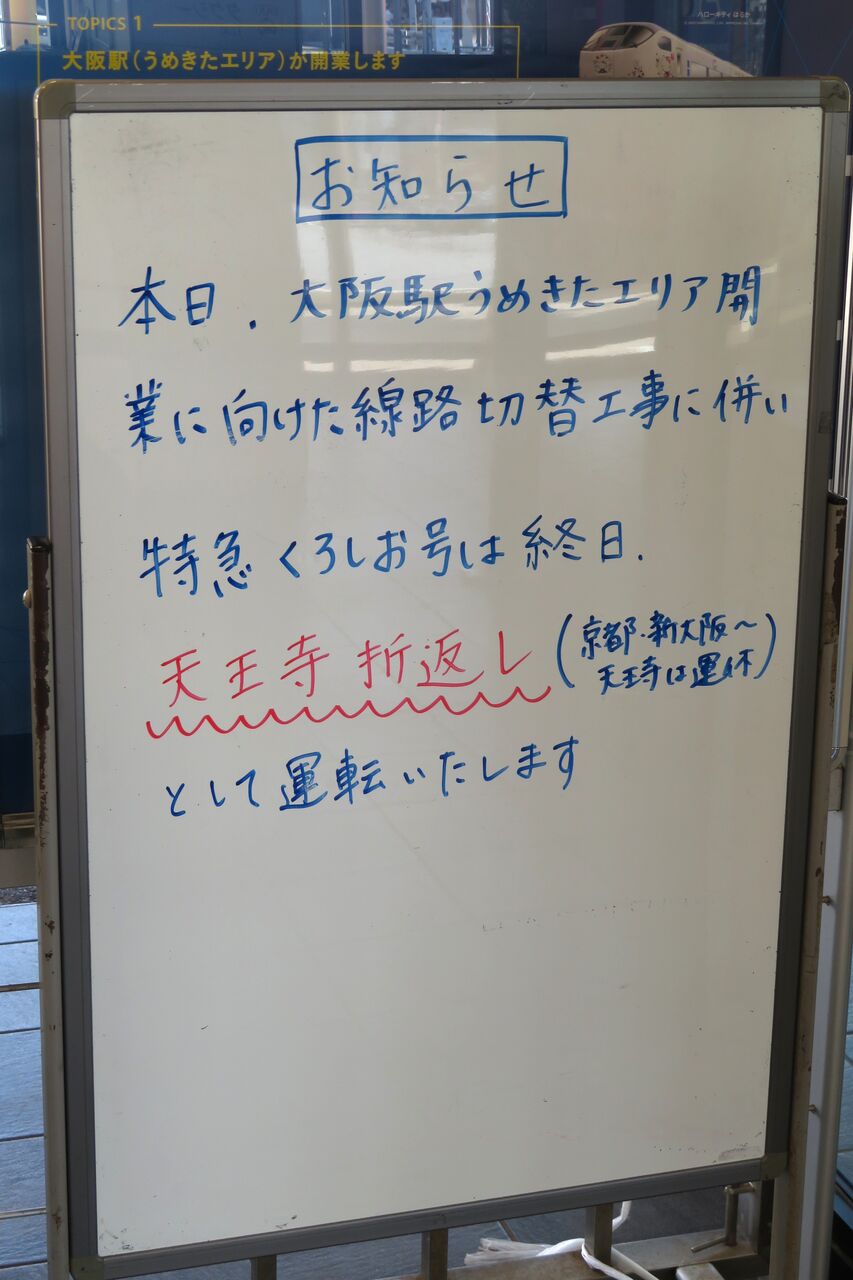 TOPICS 1
大阪駅(うめきたエリア)が開業します
ハローキティ はるか
お知らせ
本日、大阪駅うめきたエリア開
業に向けた線路切替工事に併い
特急くろしお号は終日、
天王寺折返し(京都・新大阪〜
天王寺は運休)
として運転いたします